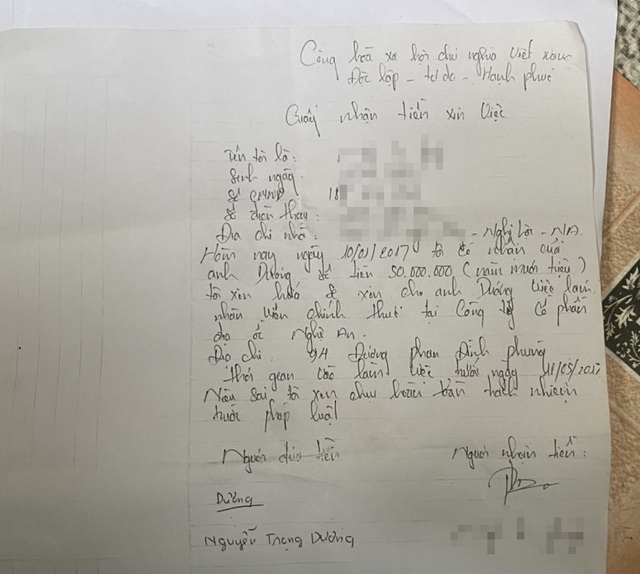 Cộng hoà xã hội chủ nghĩa Việt Nam
Độc lập - tự do - Hạnh phúc
Giấy nhận tiền xin việc
Tên tôi là:
Sinh ngày:
Số CMND 18
Số điện thoại:
Địa chỉ nhà: - Nghi - N.A.
Hôm nay ngày 10/01/2017 tôi có nhận của
anh Dương số tiền 50.000.000 (năm mươi triệu)
tôi xin hứa sẽ xin cho anh Dương việc làm
nhân viên chính thức tại Công ty Cổ phần
Nghệ An.
Địa chỉ: Đường phan Đình phùng
Thời gian vào làm việc trước ngày
Nếu sai tôi xin chịu hoàn toàn trách nhiệm
trước pháp luật
Người đưa tiền
Người nhận tiền:
Dương
Nguyễn Trọng Dương